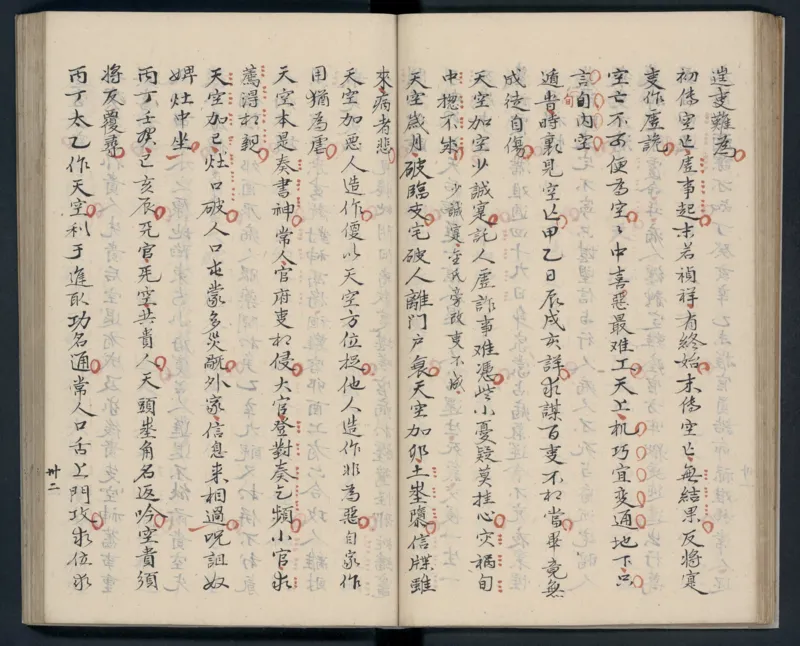 叓難為
初傳空亡虛事起末若禎祥有終始末傳空亡無結果反將寔
叓作虛說
空亡不可便為空空中喜惡最难工天上机巧宜変通地下只
言旬内空
遁昔時裏見空亡甲乙日辰戌亥詳求謀百叓不相當畢竟無
成徒自傷
天空加空少誠寔託人虛詐事难憑些小憂疑莫挂心灾禍旬
中揔不来 少誠寔空叓不成
天空歲月破臨支宅破人離門户衰天空加卯土信牒雖
來病者悲
天空加悪人造作便以天空方位捉他人造作非為惡自家作
用猶為虐
天空本是奏書神常人官府叓相侵大官登對奏乞頻小官求
薦得相親
天空加巳灶口破人口屯蒙多災外家信息来相過呪詛奴
婢灶中坐
丙丁壬癸巳亥辰死官死空共貴人天頭角名返吟空貴須
將反覆尋
丙丁太乙作天空利于進取功名通常人口舌上門攻求位求
卅二